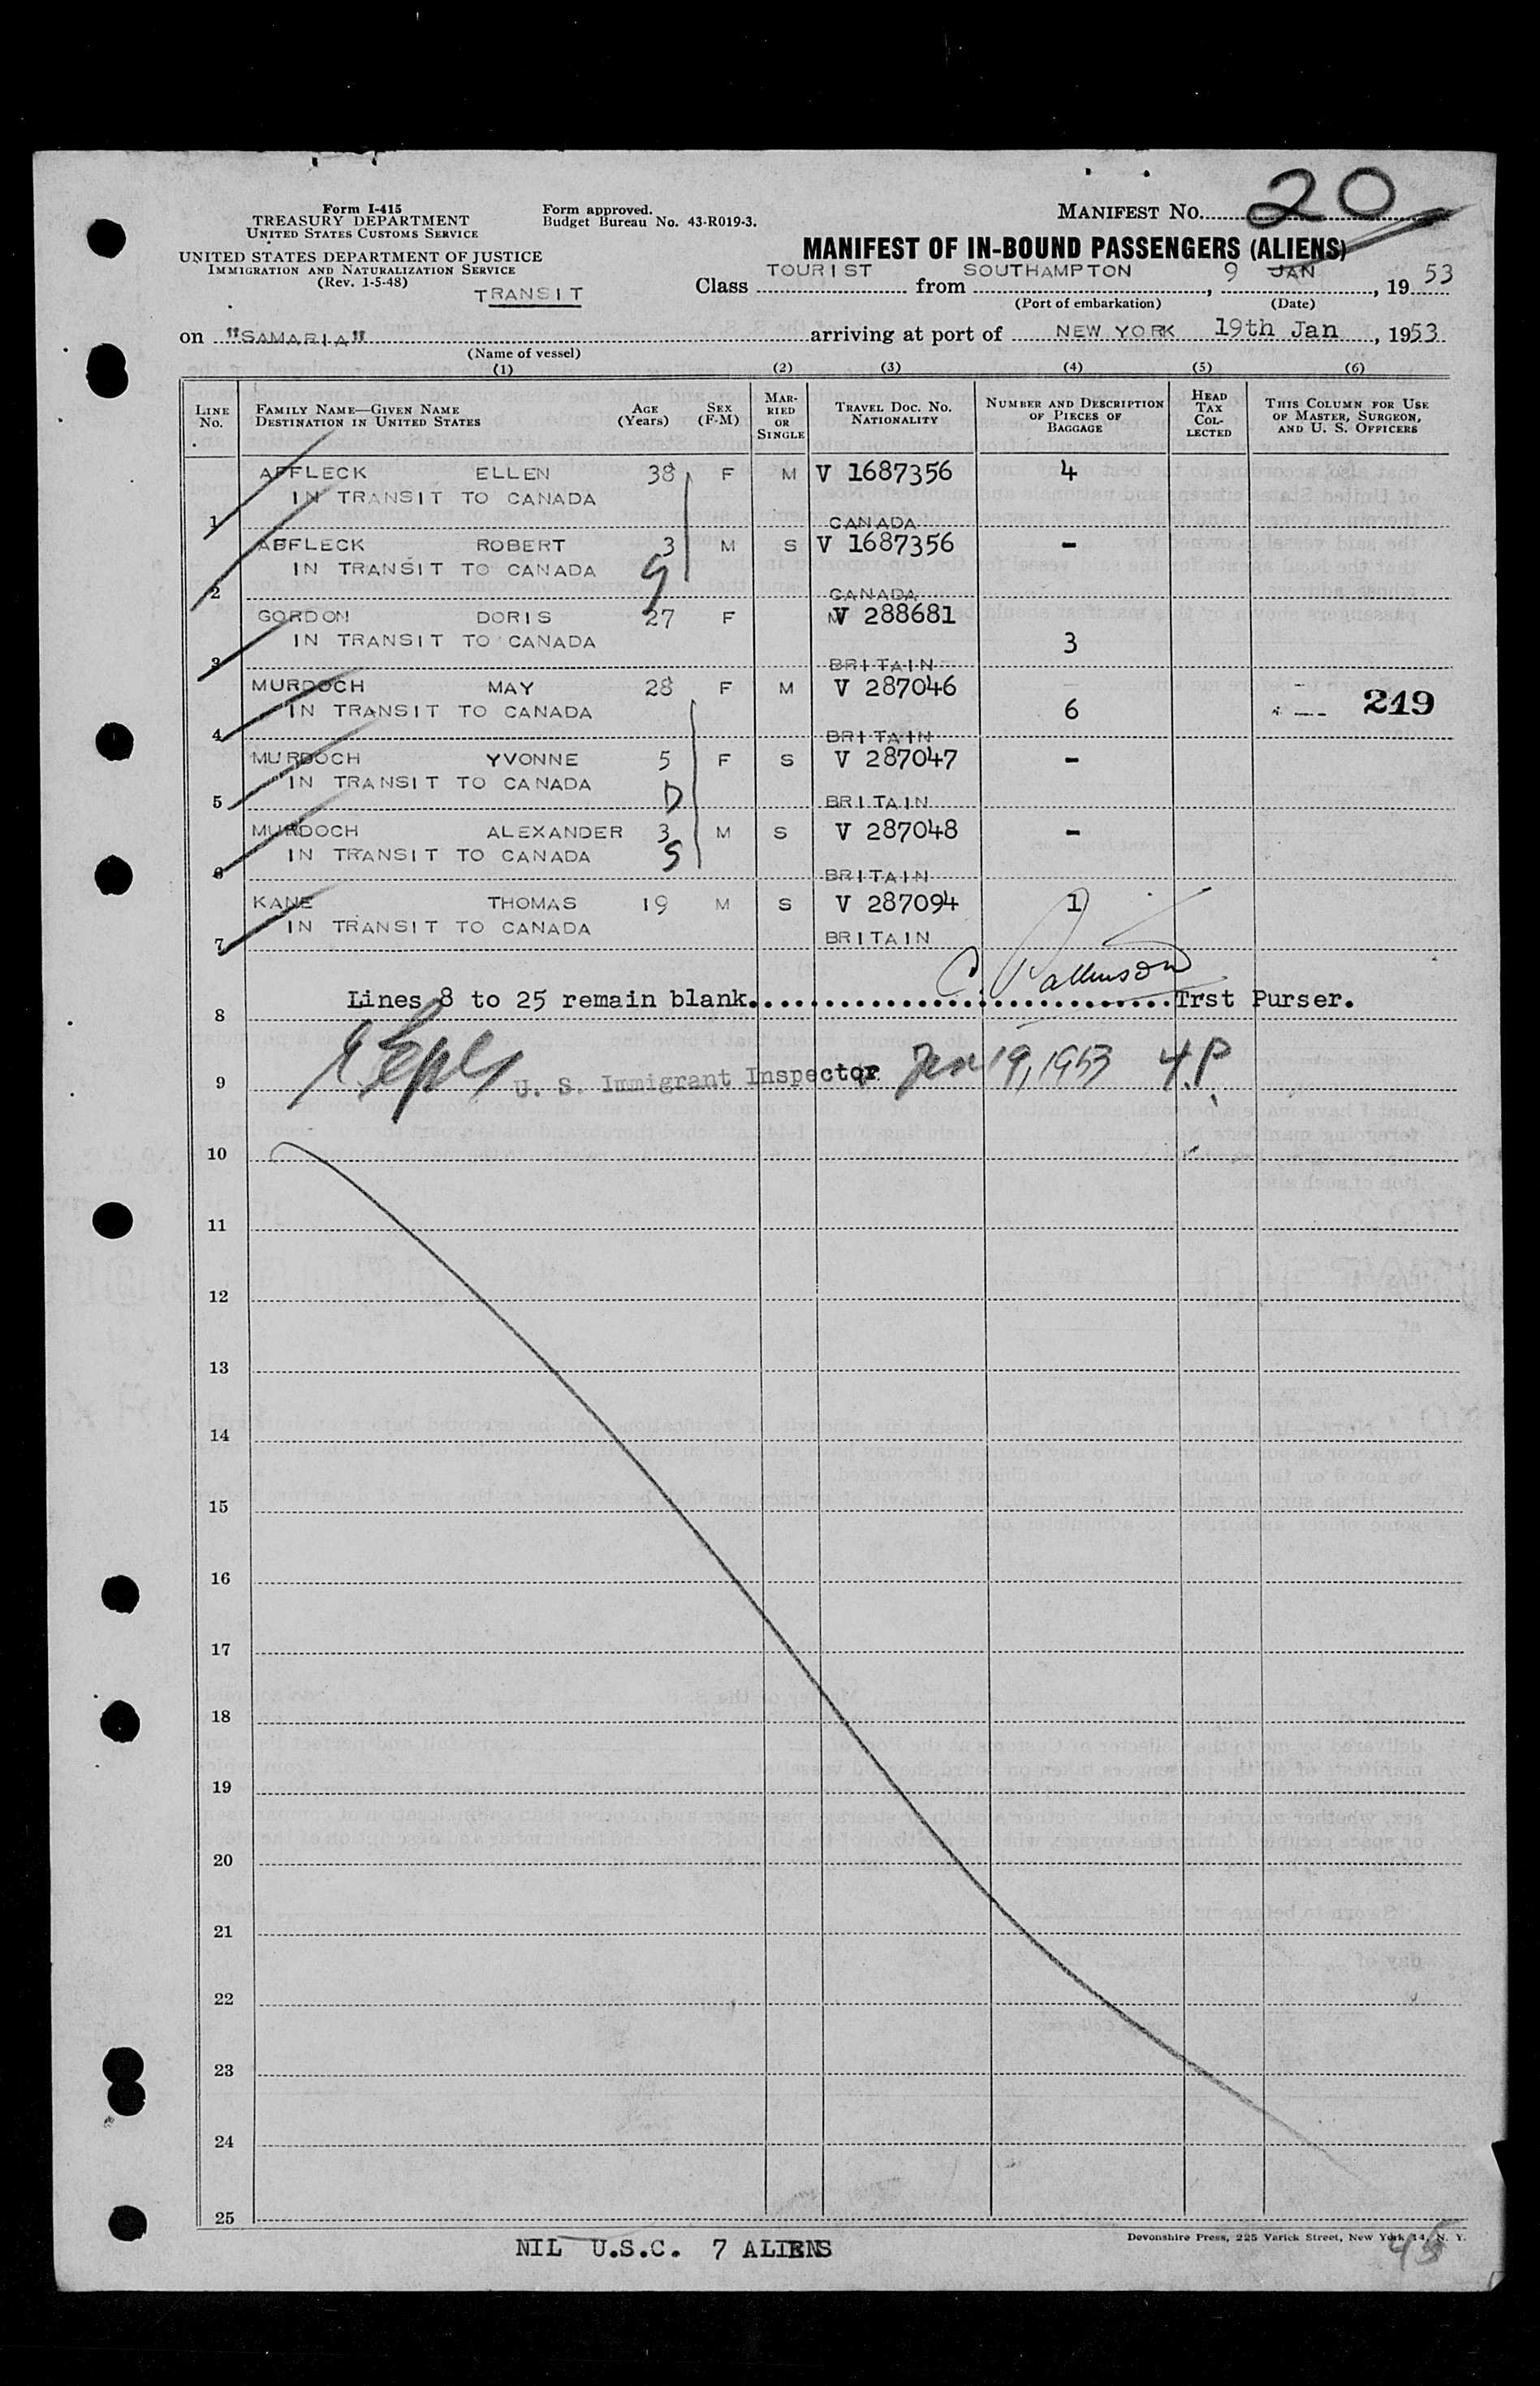 Form I-415
TREASURY DEPARTMENT
UNITED STATES CUSTOMS SERVICE
UNITED STATES DEPARTMENT OF JUSTICE
IMMIGRATION AND NATURALIZATION SERVICE
(Rev. 1-5-48)
Form approved.
Budget Bureau No. 43-R019-3.
TRANSIT
MANIFEST NO. 20
MANIFEST OF IN-BOUND PASSENGERS (ALIENS)
Class TOURIST from SOUTHAMPTON, 9 JAN, 1953
(Port of embarkation) (Date)
on "SAMARIA" arriving at port of NEW YORK 19th Jan, 1953
(Name of vessel)
(1) (2) (3) (4) (5) (6)
LINE No. FAMILY NAME—GIVEN NAME DESTINATION IN UNITED STATES AGE (Years) SEX (F-M) MARRIED OR SINGLE TRAVEL DOC. NO. NATIONALITY NUMBER AND DESCRIPTION OF PIECES OF BAGGAGE HEAD TAX COLLECTED THIS COLUMN FOR USE OF MASTER, SURGEON, AND U. S. OFFICERS
AFFLECK ELLEN 38 F M V 1687356 4
IN TRANSIT TO CANADA
1 CANADA
AFFLECK ROBERT 3 M S V 1687356 -
IN TRANSIT TO CANADA
2 CANADA
GORDON DORIS 27 F M V 288681
IN TRANSIT TO CANADA 3
3 BRITAIN
MURDOCH MAY 28 F M V 287046
IN TRANSIT TO CANADA 6 219
4 BRITAIN
MURDOCH YVONNE 5 F S V 287047 -
IN TRANSIT TO CANADA
5 D BRITAIN
MURDOCH ALEXANDER 3 M S V 287048 -
IN TRANSIT TO CANADA S
6 BRITAIN
KANE THOMAS 19 M S V 287094 1
IN TRANSIT TO CANADA
7 BRITAIN
Lines 8 to 25 remain blank. Trst Purser.
8
9 U. S. Immigrant Inspector Jan 19, 1953 4 P
10
11
12
13
14
15
16
17
18
19
20
21
22
23
24
25
NIL U.S.C. 7 ALIENS
Devonshire Press, 225 Varick Street, New York 14, N. Y.